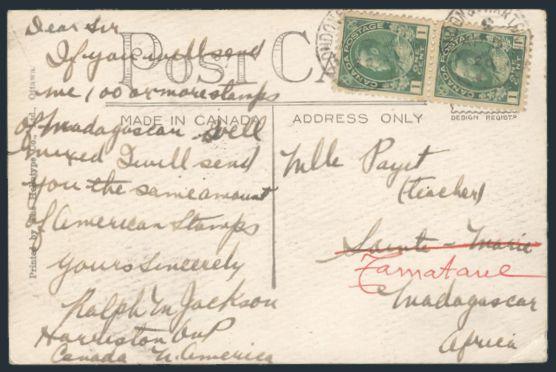 Dear Sir
If you will send
me 100 or more stamps
of Madagascar well
mixed I will send
you the same amount
of American Stamps
Yours Sincerely
Ralph M Jackson
Harriston Ont
Canada N. America
POST CA
MADE IN CANADA
ADDRESS ONLY
DESIGN REGIST'D
CANADA POSTAGE
1 CENT 1
CANADA POSTAGE
1 CENT 1
LONDON
Mlle Payet
(teacher)
Sainte-Marie
Tamatave
Madagascar
Africa
Printed by The Heliotype Co., Ltd., Ottawa.